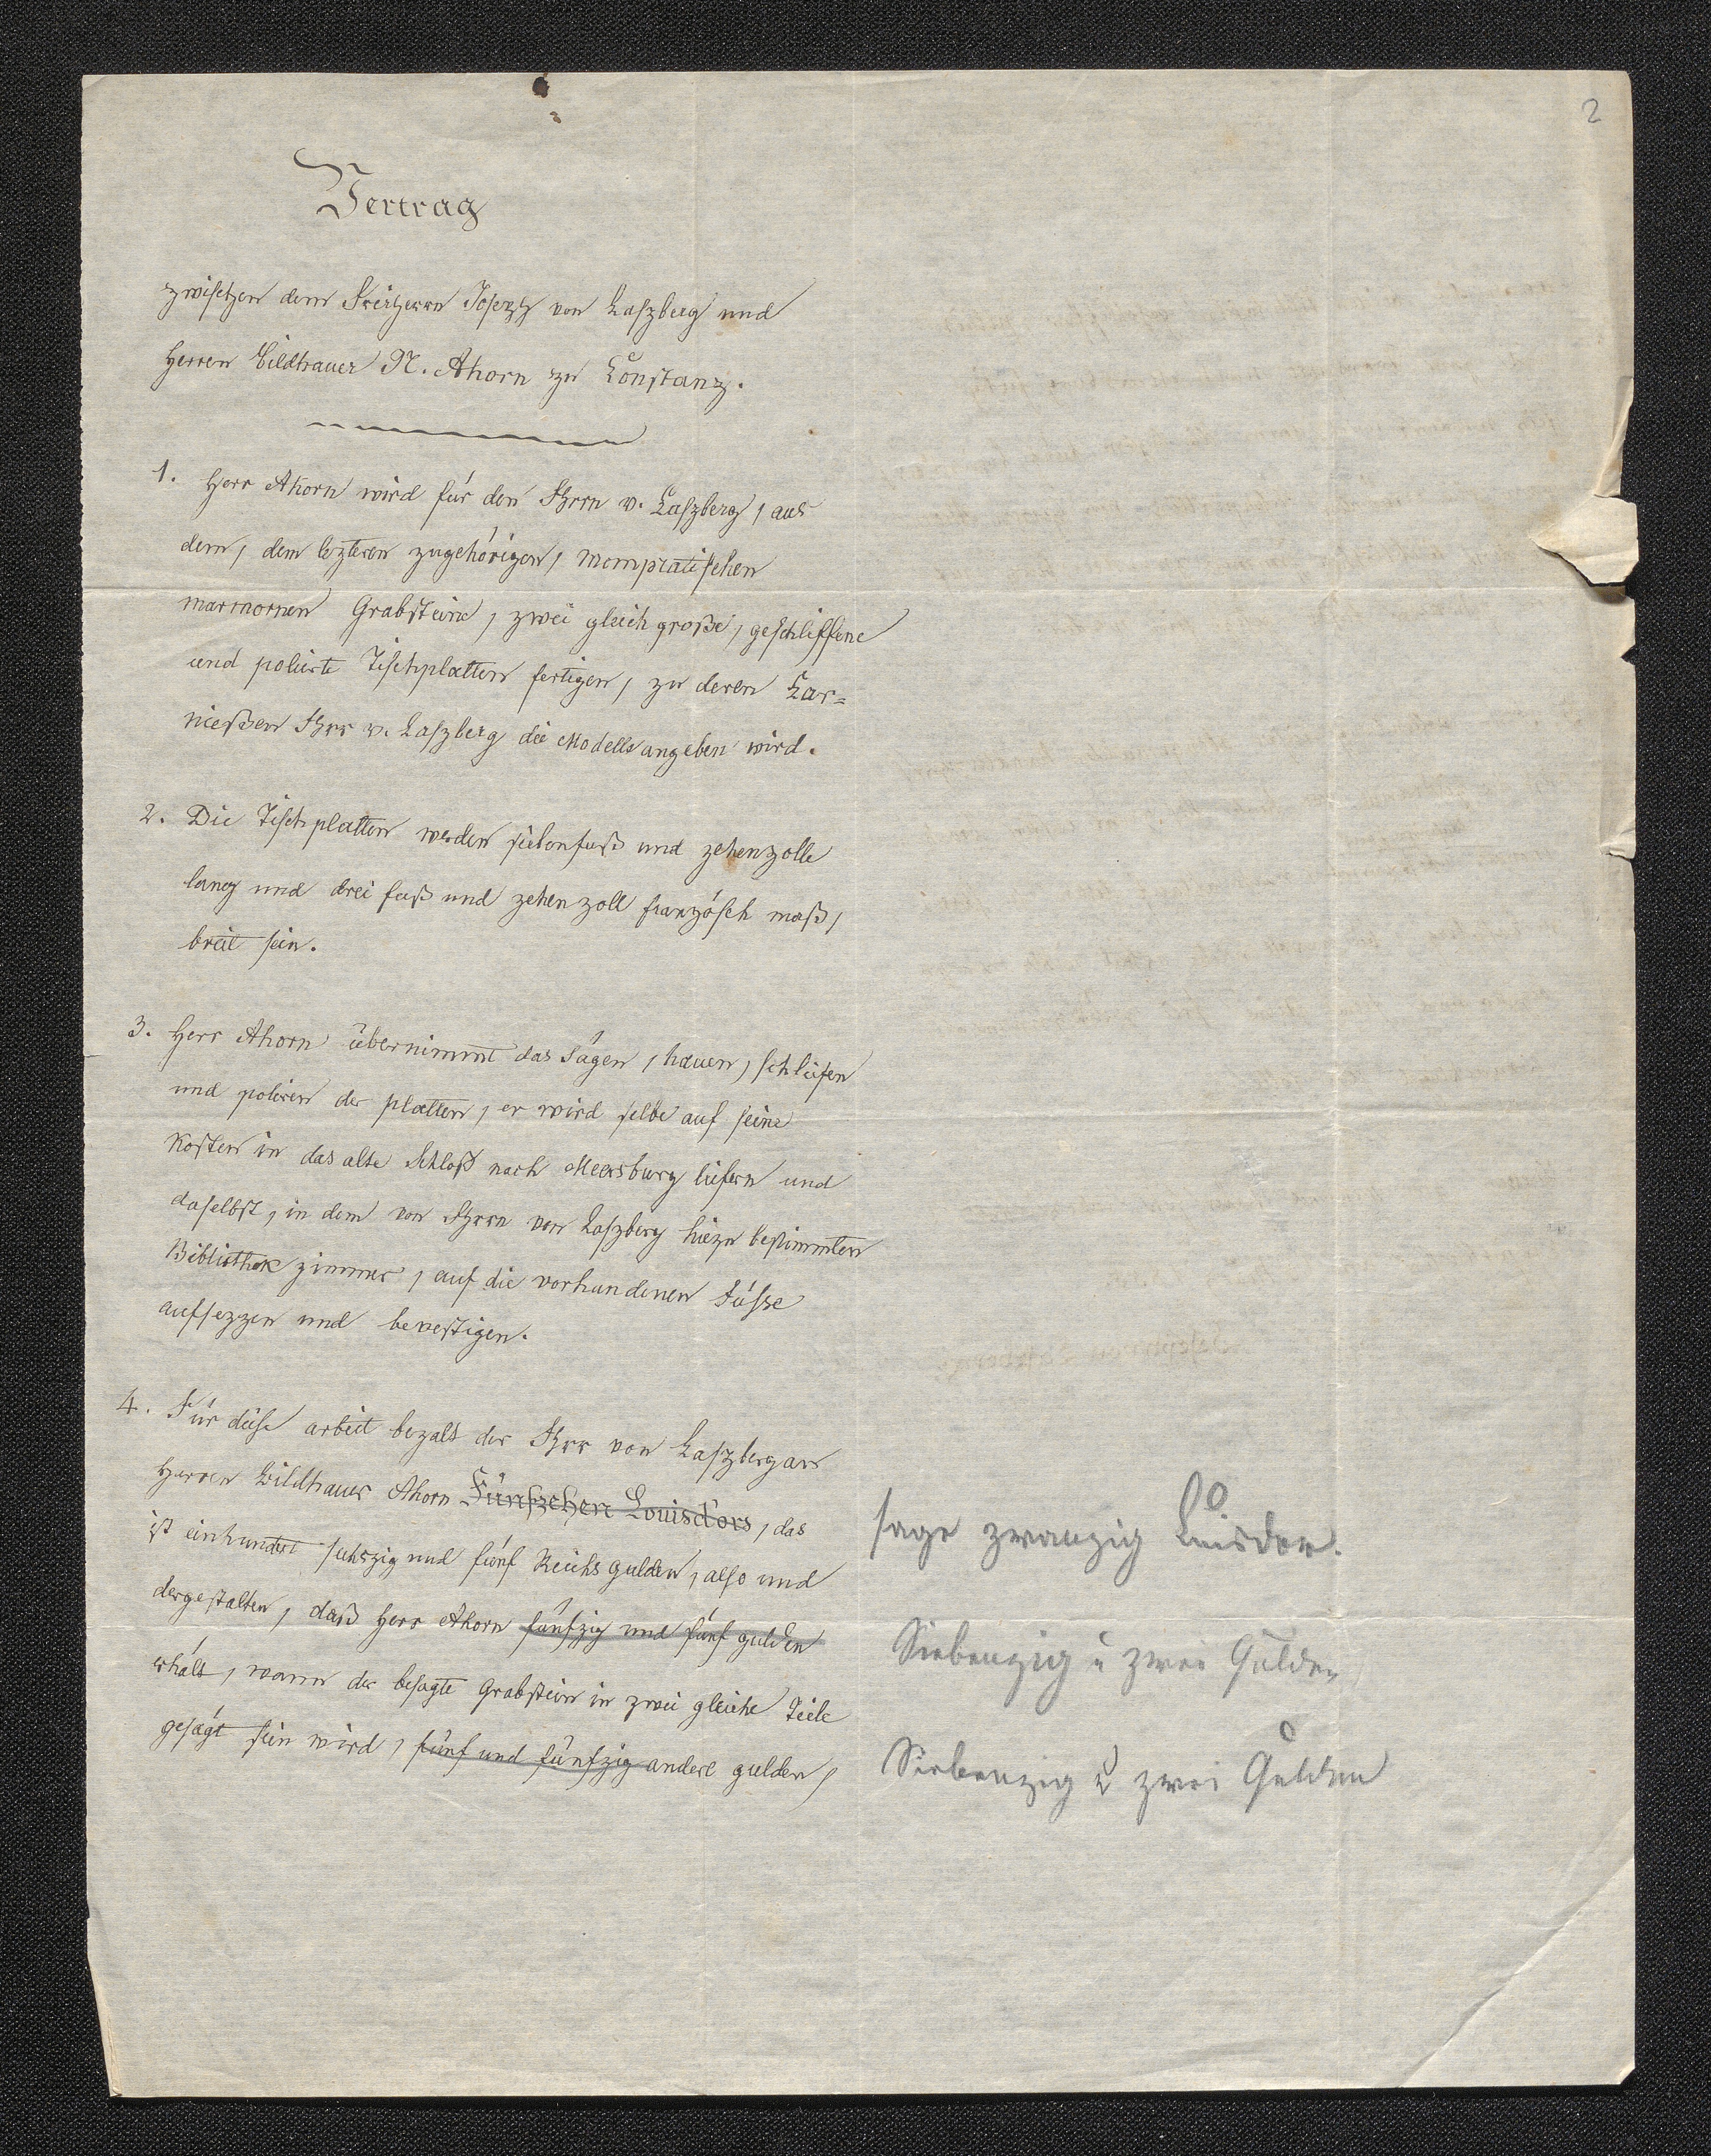 2
Vertrag
zwischen dem Freiherrn Joseph von Laszberg und
Herren Bildhauer N. Ahorn zu Constanz.
1. Herr Ahorn wird für den Fhrrn v. Laszberg, aus
dem, dem lezteren zugehörigen,
marmornen Grabsteine, zwei gleich große, geschliffene
und polierte Tischplatten fertigen, zu deren Kar=
nießen Fhrr v. Laszberg die Modelle angeben wird.
2. Die Tischplatten werden siebenfuß und zehenzolle
lang und drei fuß und zehen zoll französch maß,
breit sein.
3. Herr Ahorn übernimmt das Sägen, hauen, schleifen
und polieren der platten, er wird selbe auf seine
Kosten in das alte Schloß nach Meersburg liefern und
daselbst, in dem von Fhrrn von Laszberg hiezu bestimmten
Bibliothek zimmer, auf die vorhandenen Füsse
aufsezzen und bevestigen.
4. Für diese arbeit bezalt der Fhrr von Laszberg an
Herren Bildhauer Ahorn Fünfzehen Louisd'ors, das
ist einhundert sechszig und fünf Reichsgulden, also und
dergestalten, daß Herr Ahorn fünfzig und fünf gulden
erhält, wann der besagte Grabstein in zwei gleiche Teile
gesägt sein wird, fünf und fünfzig andere gulden,
sage zwanzig Luisdor.
Siebenzig u zwei Gulden
Siebenzig u zwei Gulden